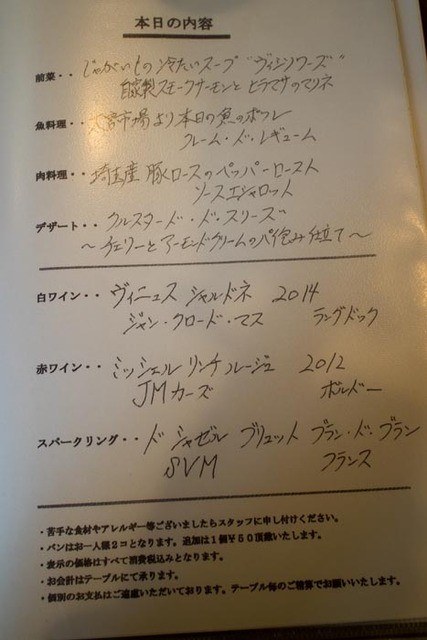 本日の内容
前菜・・じゃがいもの冷たいスープ "ヴィシソワーズ"
自家製スモークサーモンと ヒラマサのマリネ
魚料理・・大宮市場より本日の魚のポワレ
クレーム・ド・レギューム
肉料理・・埼玉産 豚ロースのペッパーロースト
ソースエシャロット
デザート・・クルスタード・ド・スリーズ
～チェリーとアーモンドクリームのパイ包み仕立て～
白ワイン・・ヴィニュス シャルドネ 2014
ジャン・クロード・マス ラングドック
赤ワイン・・ミッシェル リンチ ルージュ 2012
JMカーズ ボルドー
スパークリング・・ド シャゼル ブリュット ブラン・ド・ブラン
SVM フランス
・苦手な食材やアレルギー等ございましたらスタッフに申し付けください。
・パンはお一人様2コとなります。追加は1個¥50頂戴いたします。
・表示の価格はすべて消費税込みとなります。
・お会計はテーブルにて承ります。
・個別のお支払はご遠慮いただいております。テーブル毎のご精算でお願いいたします。